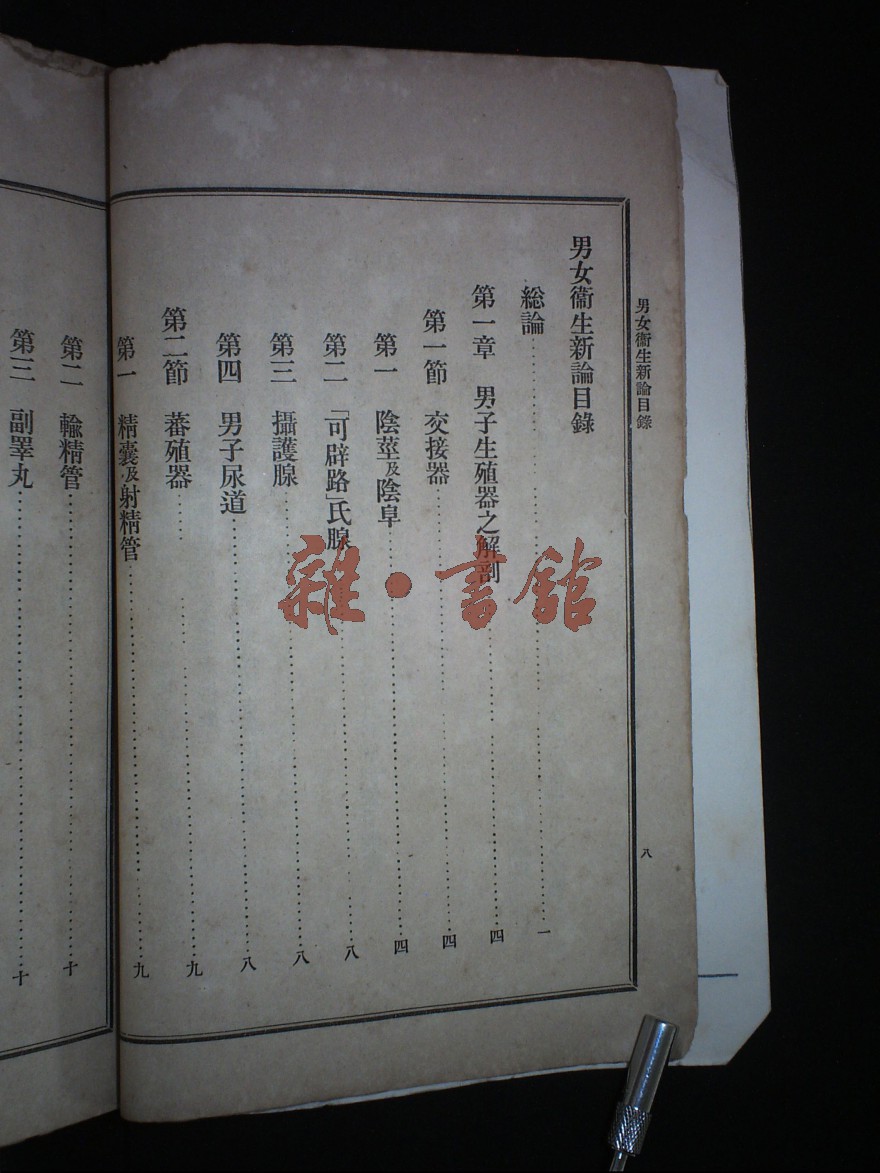 男女衞生新論目錄
八
男女衞生新論目錄
総論 一
第一章 男子生殖器之解剖 四
第一節 交接器 四
第一 陰莖及陰阜 四
第二 「可辟路」氏腺 八
第三 攝護腺 八
第四 男子尿道 八
第二節 蕃殖器 九
第一 精囊及射精管 九
第二 輸精管 十
第三 副睪丸 十
雜·書館